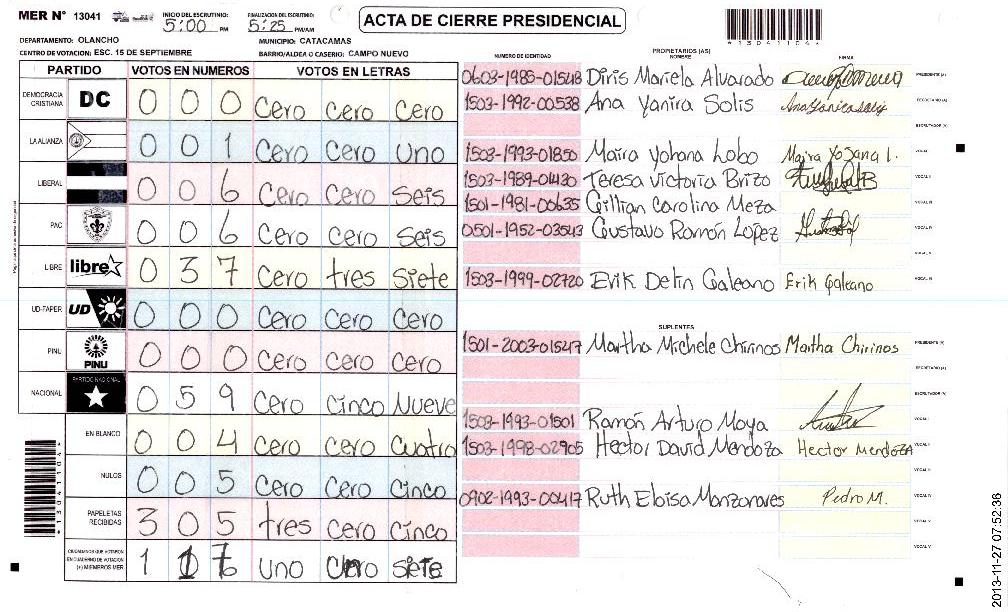 MER N° 13041
INICIO DEL ESCRUTINIO: 5:00 PM
FINALIZACION DEL ESCRUTINIO: 5:25 PM/AM
ACTA DE CIERRE PRESIDENCIAL
*13041104*
DEPARTAMENTO: OLANCHO
MUNICIPIO: CATACAMAS
CENTRO DE VOTACION: ESC. 15 DE SEPTIEMBRE
BARRIO/ALDEA O CASERIO: CAMPO NUEVO
PARTIDO VOTOS EN NUMEROS VOTOS EN LETRAS
DEMOCRACIA CRISTIANA DC 0 0 0 Cero Cero Cero
LA ALIANZA 0 0 1 Cero Cero Uno
LIBERAL 0 0 6 Cero Cero Seis
PAC 0 0 6 Cero Cero Seis
LIBRE libre 0 3 7 Cero tres Siete
UD-FAPER UD 0 0 0 Cero Cero Cero
PINU PINU 0 0 0 Cero Cero Cero
NACIONAL PARTIDO NACIONAL 0 5 9 Cero Cinco Nueve
EN BLANCO 0 0 4 Cero Cero Cuatro
NULOS 0 0 5 Cero Cero Cinco
PAPELETAS RECIBIDAS 3 0 5 tres Cero Cinco
CIUDADANOS QUE VOTARON EN CUADERNO DE VOTACION (+) MIEMBROS MER 1 Uno Siete
*13041104*
PROPIETARIOS (AS)
NUMERO DE IDENTIDAD NOMBRE FIRMA
0603-1985-01548 Diris Mariela Alvarado PRESIDENTE (A)
1503-1992-00538 Ana Yanira Solis SECRETARIO (A)
ESCRUTADOR (A)
1503-1993-01850 Maira Yohana Lobo Maira Yohana L. VOCAL I
1503-1989-01430 Teresa Victoria Brizo VOCAL II
1501-1981-00635 Gillian Carolina Meza VOCAL III
0501-1952-03543 Gustavo Ramón Lopez VOCAL IV
1503-1999-02720 Erik Delin Galeano Erik Galeano
SUPLENTES
1501-2003-01547 Martha Michele Chirinos Martha Chirinos PRESIDENTE (A)
SECRETARIO (A)
ESCRUTADOR (A)
1503-1993-01501 Ramón Arturo Moya VOCAL I
1503-1998-02905 Hector David Mendoza Hector Mendoza VOCAL II
0902-1993-00417 Ruth Eloisa Manzanares Pedro M. VOCAL IV
VOCAL V
2013-11-27 07:52:36